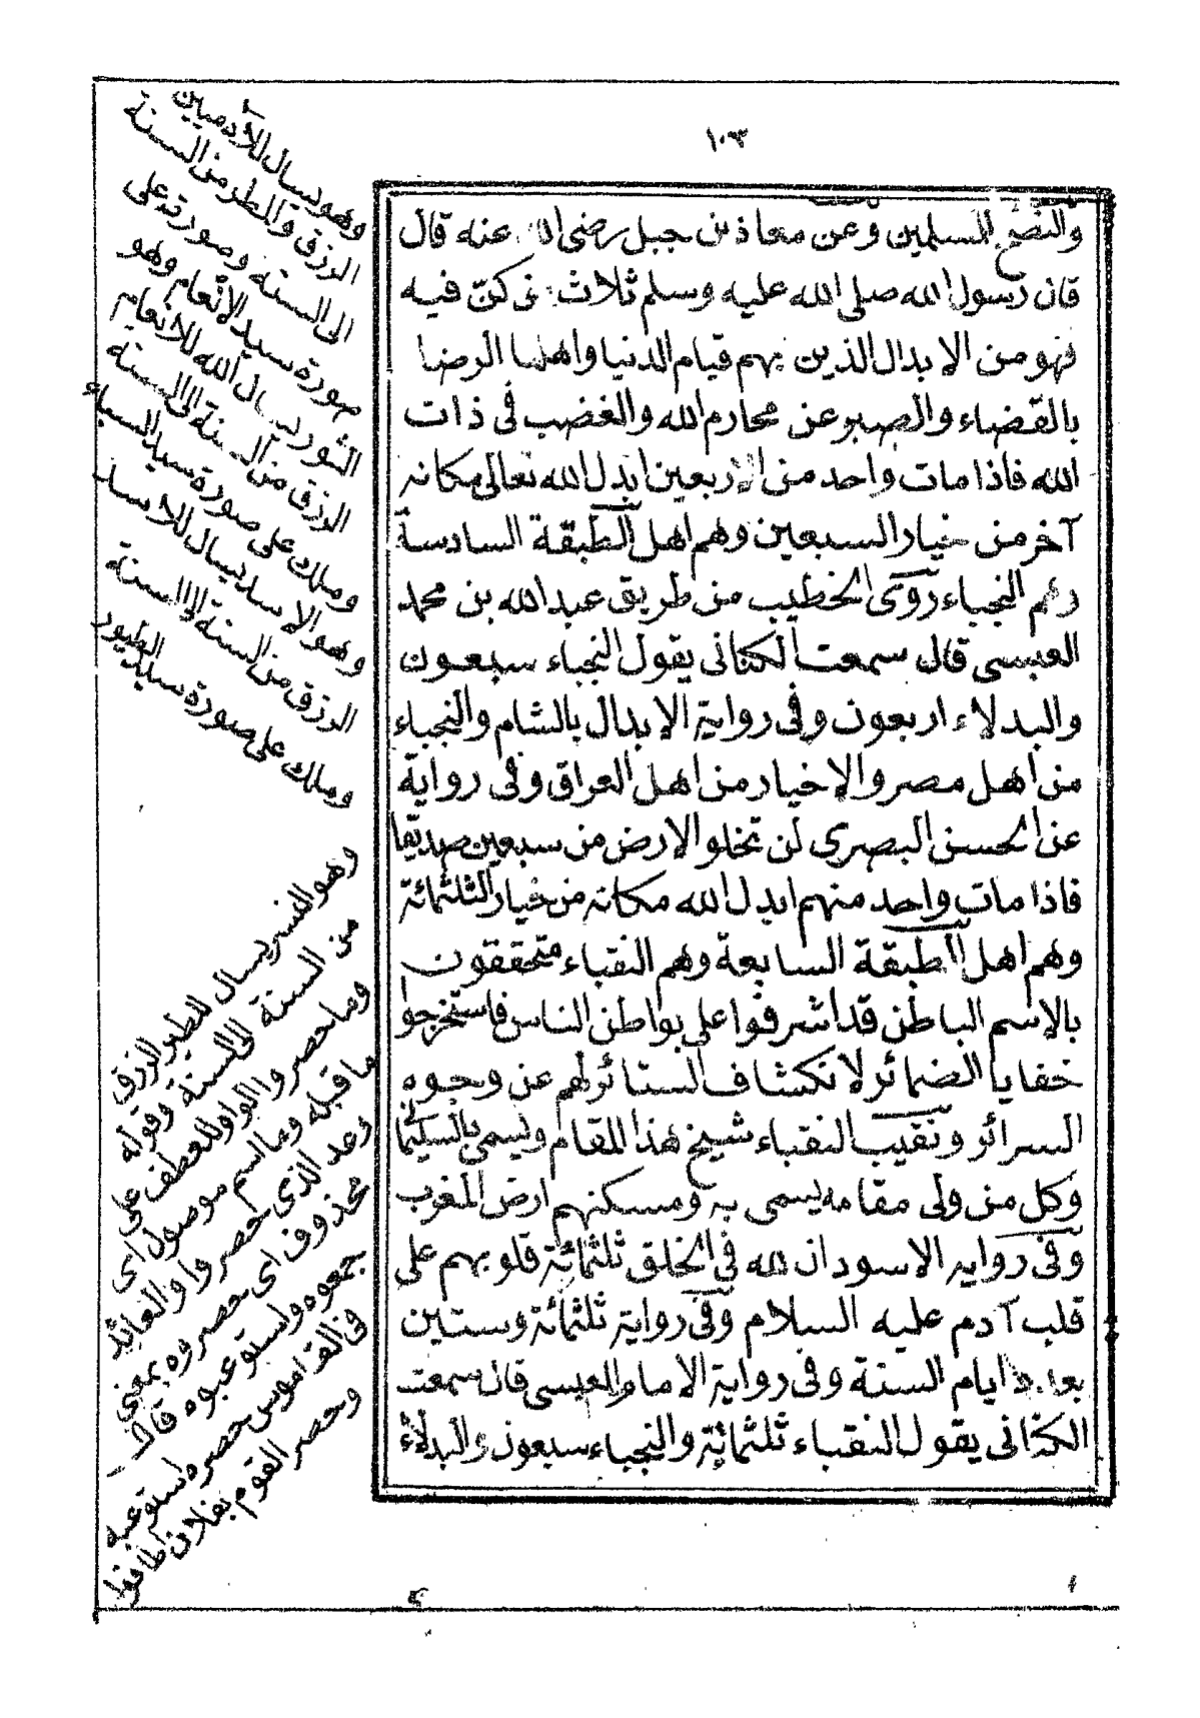 ١٠٣
والنصح للمسلمين وعن معاذ بن جبل رضى الله عنه قال
قال رسول الله صلى الله عليه وسلم ثلاث من كن فيه
فهو من الابدال الذين بهم قيام الدنيا واهلها الرضا
بالقضاء والصبر عن محارم الله والغضب فى ذات
الله فاذا مات واحد من الاربعين ابدل الله تعالى مكانه
آخر من خيار السبعين وهم اهل الطبقة السادسة
وهم النجباء روى الخطيب من طريق عبد الله بن محمد
العبسى قال سمعت الكنانى يقول النجباء سبعون
والبدلاء اربعون وفى رواية الابدال بالشام والنجباء
من اهل مصر والاخيار من اهل العراق وفى رواية
عن الحسن البصرى لن تخلو الارض من سبعين صديقا
فاذا مات واحد منهم ابدل الله مكانه من خيار الثلثمائة
وهم اهل الطبقة السابعة وهم النقباء متحققون
بالاسم الباطن قد اشرفوا على بواطن الناس فاستخرجوا
خفايا الضمائر لانكشاف الستائر لهم عن وجوه
السرائر ونقيب النقباء شيخ هذا المقام ويسمى
وكل من ولى مقامه يسمى به ومسكنهم ارض المغرب
وفى رواية الاسود ان لله فى الخلق ثلثمائة قلوبهم على
قلب آدم عليه السلام وفى رواية ثلثمائة وستين
بعدد ايام السنة وفى رواية الامام العبسى قال سمعت
الكنانى يقول النقباء ثلثمائة والنجباء سبعون والبدلاء
وهو يسال للآدميين
الرزق والمطر من السنة
الى السنة وصورته على
صورة سيد الانعام وهو
الثور يسال الله للانعام
الرزق من السنة الى السنة
وملك على صورة سيد السباع
وهو الاسد يسال للاسد
الرزق من السنة الى السنة
وملك على صورة سيد الطيور
وهو النسر يسال للطير الرزق
من السنة الى السنة وقوله
وما حصروا الواو للعطف على
ما قبله وما اسم موصول اى
وعد الذى حصروا والعائد
محذوف اى حصروه بمعنى
جمعوه واستوعبوه قال
فى القاموس حصره استوعبه
وحصر القوم بفلان طافوا